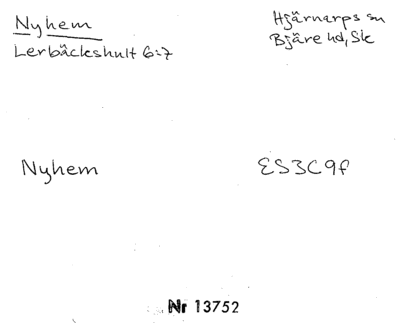 Nyhem
Hjärnarps sn
Lerbäckshult 6:7
Bjäre hd, Sk
Nyhem
ES3C9f
Nr 13752